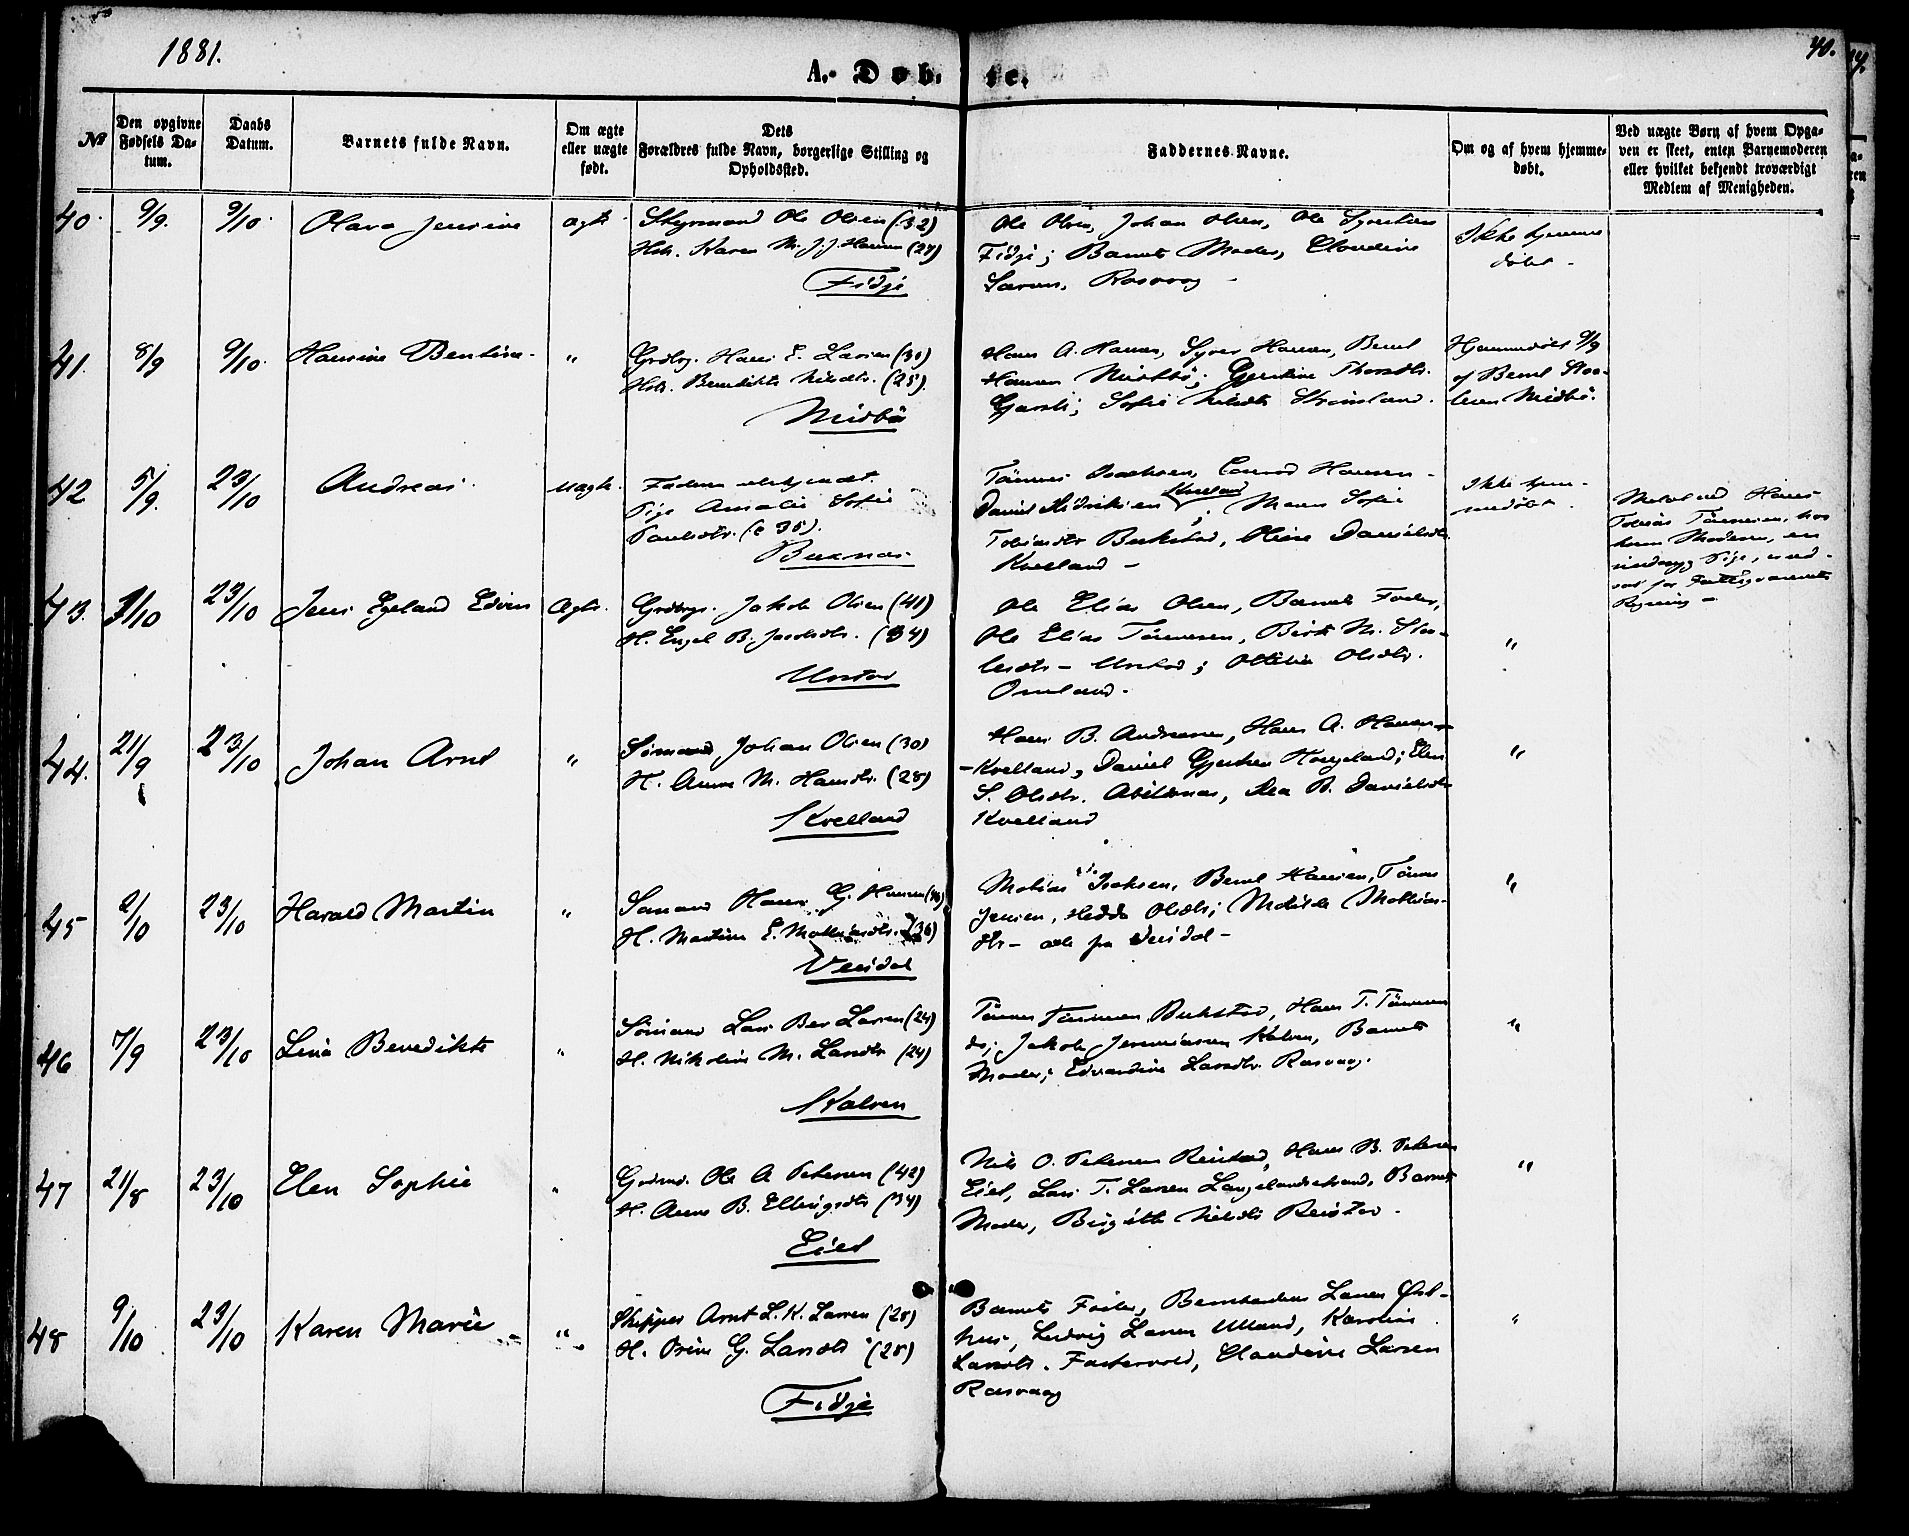 1881.
40.
A. Døb-te.
№
Den opgivne Fødsels Datum.
Daabs Datum.
Barnets fulde Navn.
Om ægte eller uægte født.
Dets Forældres fulde Navn, borgerlige Stilling og Opholdssted.
Faddernes Navne.
Om og af hvem hjemmedøbt.
Ved uægte Børn af hvem Opgaven er skeet, enten Barnemoderen eller hvilket bekjendt troværdigt Medlem af Menigheden.
40. 9/9. 9/10. Olava Jensine ægte
Styrmand Ole Olsen (32)
Hstr. Karen M. J. J. Hansen (27)
Fidje
Ole Olsen, Johan Olsen, Ole Syvertsen
Fidje; Barnets Moder,
Larsen, Rasvaag
Ikke hjemme
døbt
41. 8/9 9/10. Hansine Bentine "
Grdbr. Hans E. Larsen (30)
Hstr. Benedikte Nilsdtr. (25).
Midbø
Hans A. Hansen, Syver Hansen, Bernt
Hansen Midtbø; Gjertine Thorsdtr.
Sofie Nilsdtr
Hjemmedøbt 9/9
af Bernt
Midbø.
42 5/9. 23/10 Andreas uægte
Faderen ubekjendt.
Pige Amalie Sofie
Paulsdtr. (35).
Buknæs
Tønnes Isaksen, Conrad Hansen
Daniel Didriksen Kvelland, Maren Sofie
Tobiasdtr Bukstad, Danielsdtr
Kvelland
Ikke hjem-
medøbt.
Meldt ved Hans
Tobias Tønnesen, hos
hvem Moderen, en
Pige, er ud-
sat for Fattigvæsenets
Regning
43. 1/10 23/10 Jens Egeland Edvin Ægte
Grdbrgr. Jakob Olsen (41)
H. Engel B. Jacobsdtr. (34)
Urstad
Ole Elias Olsen, Barnets Fader,
Ole Elias Tønnesen, Birte M. Sta-
lesdtr - Urstad; Otilie Olsdtr.
Omland.
"
44. 21/9 23/10 Johan Arnt "
Sømand Johan Olsen (30)
H. Anne M. Hansdtr. (28)
Kvelland
Hans B. Andreasen, Hans A. Hansen
Kvelland, Daniel Gjertsen Haugeland; Elen
S. Olsdtr. Abelsnæs, Rea B. Danielsdtr
Kvelland
"
45 2/10 23/10 Harald Martin "
Sømand Hans G. Hansen
H. Martine E. Mathiasdtr. (36)
Veisdal
Mathias Isaksen, Bernt Hansen, Tønnes
Jensen, Hedda Olsdtr; Matilde Mathias-
dtr - alle fra Veisdal -
"
46 7/9 23/10 Lina Benedikte "
Sømand Lars Ber Larsen (24)
H. Nikoline M. Larsdtr (24)
Kalven
Tønnes Tønnesen Bukstad, Hans T. Tønnesen
ds; Jakob Jeremiasen Kalven, Barnets
Moder; Edvardine Larsdtr. Rasvaag.
"
47 21/8 23/10 Elen Sophie "
Grdmd. Ole A Petersen (42)
H. Anne B. Ellingsdtr (34)
Eiet
Nils O. Petersen Reistad, Hans B. Petersen
Eiet, Lars T. Larsen Langelandsstrand, Barnets
Moder, Birgitte Nilsdtr Reistad.
"
48 9/10 23/10 Karen Marie "
Skipper Arnt L. K. Larsen (28)
H. Trine G. Larsdtr (28)
Fidje
Barnets Fader, Larsen Øst-
hus, Ludvig Larsen Ulland, Karoline
Larsdtr. Claudine Larsen
Rasvaag
"